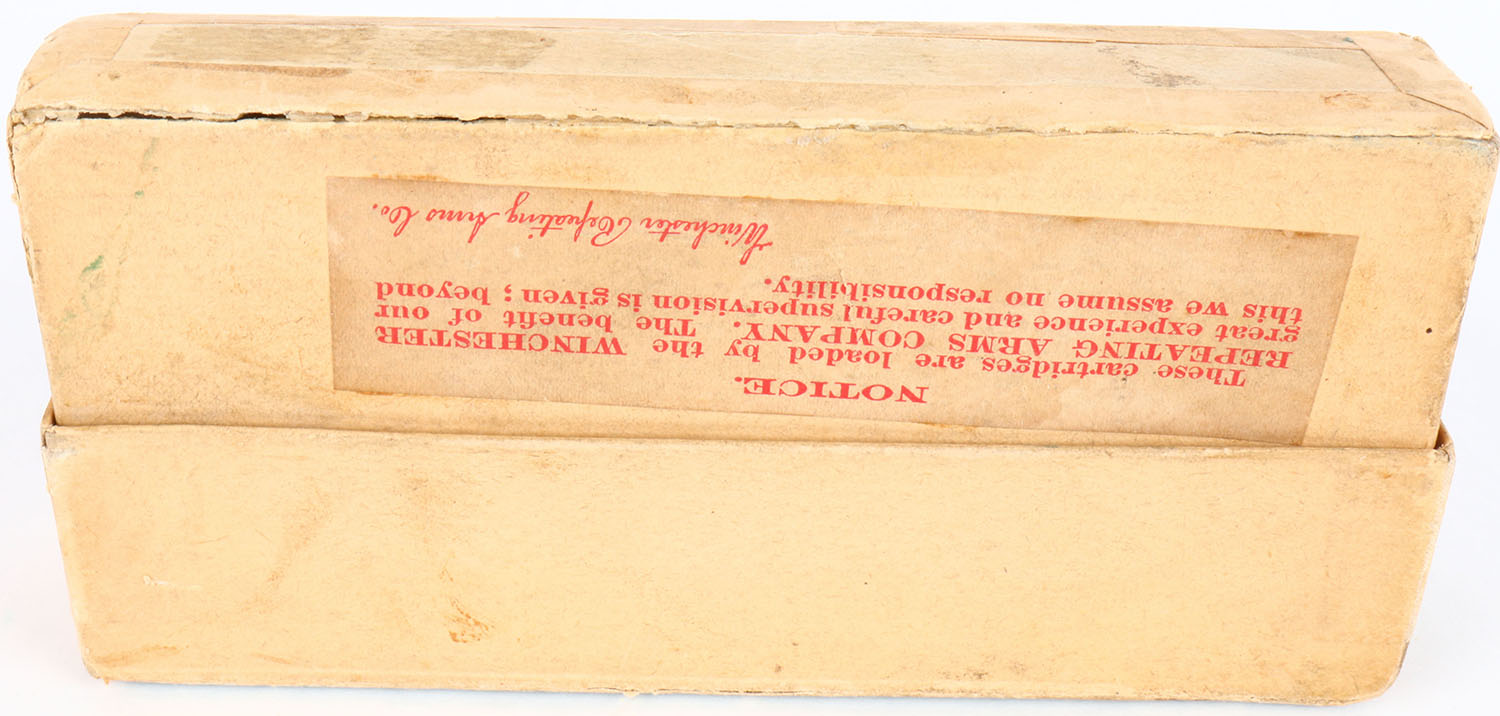 NOTICE.
These cartridges are loaded by the WINCHESTER
REPEATING ARMS COMPANY. The benefit of our
great experience and careful supervision is given; beyond
this we assume no responsibility.
Winchester Repeating Arms Co.